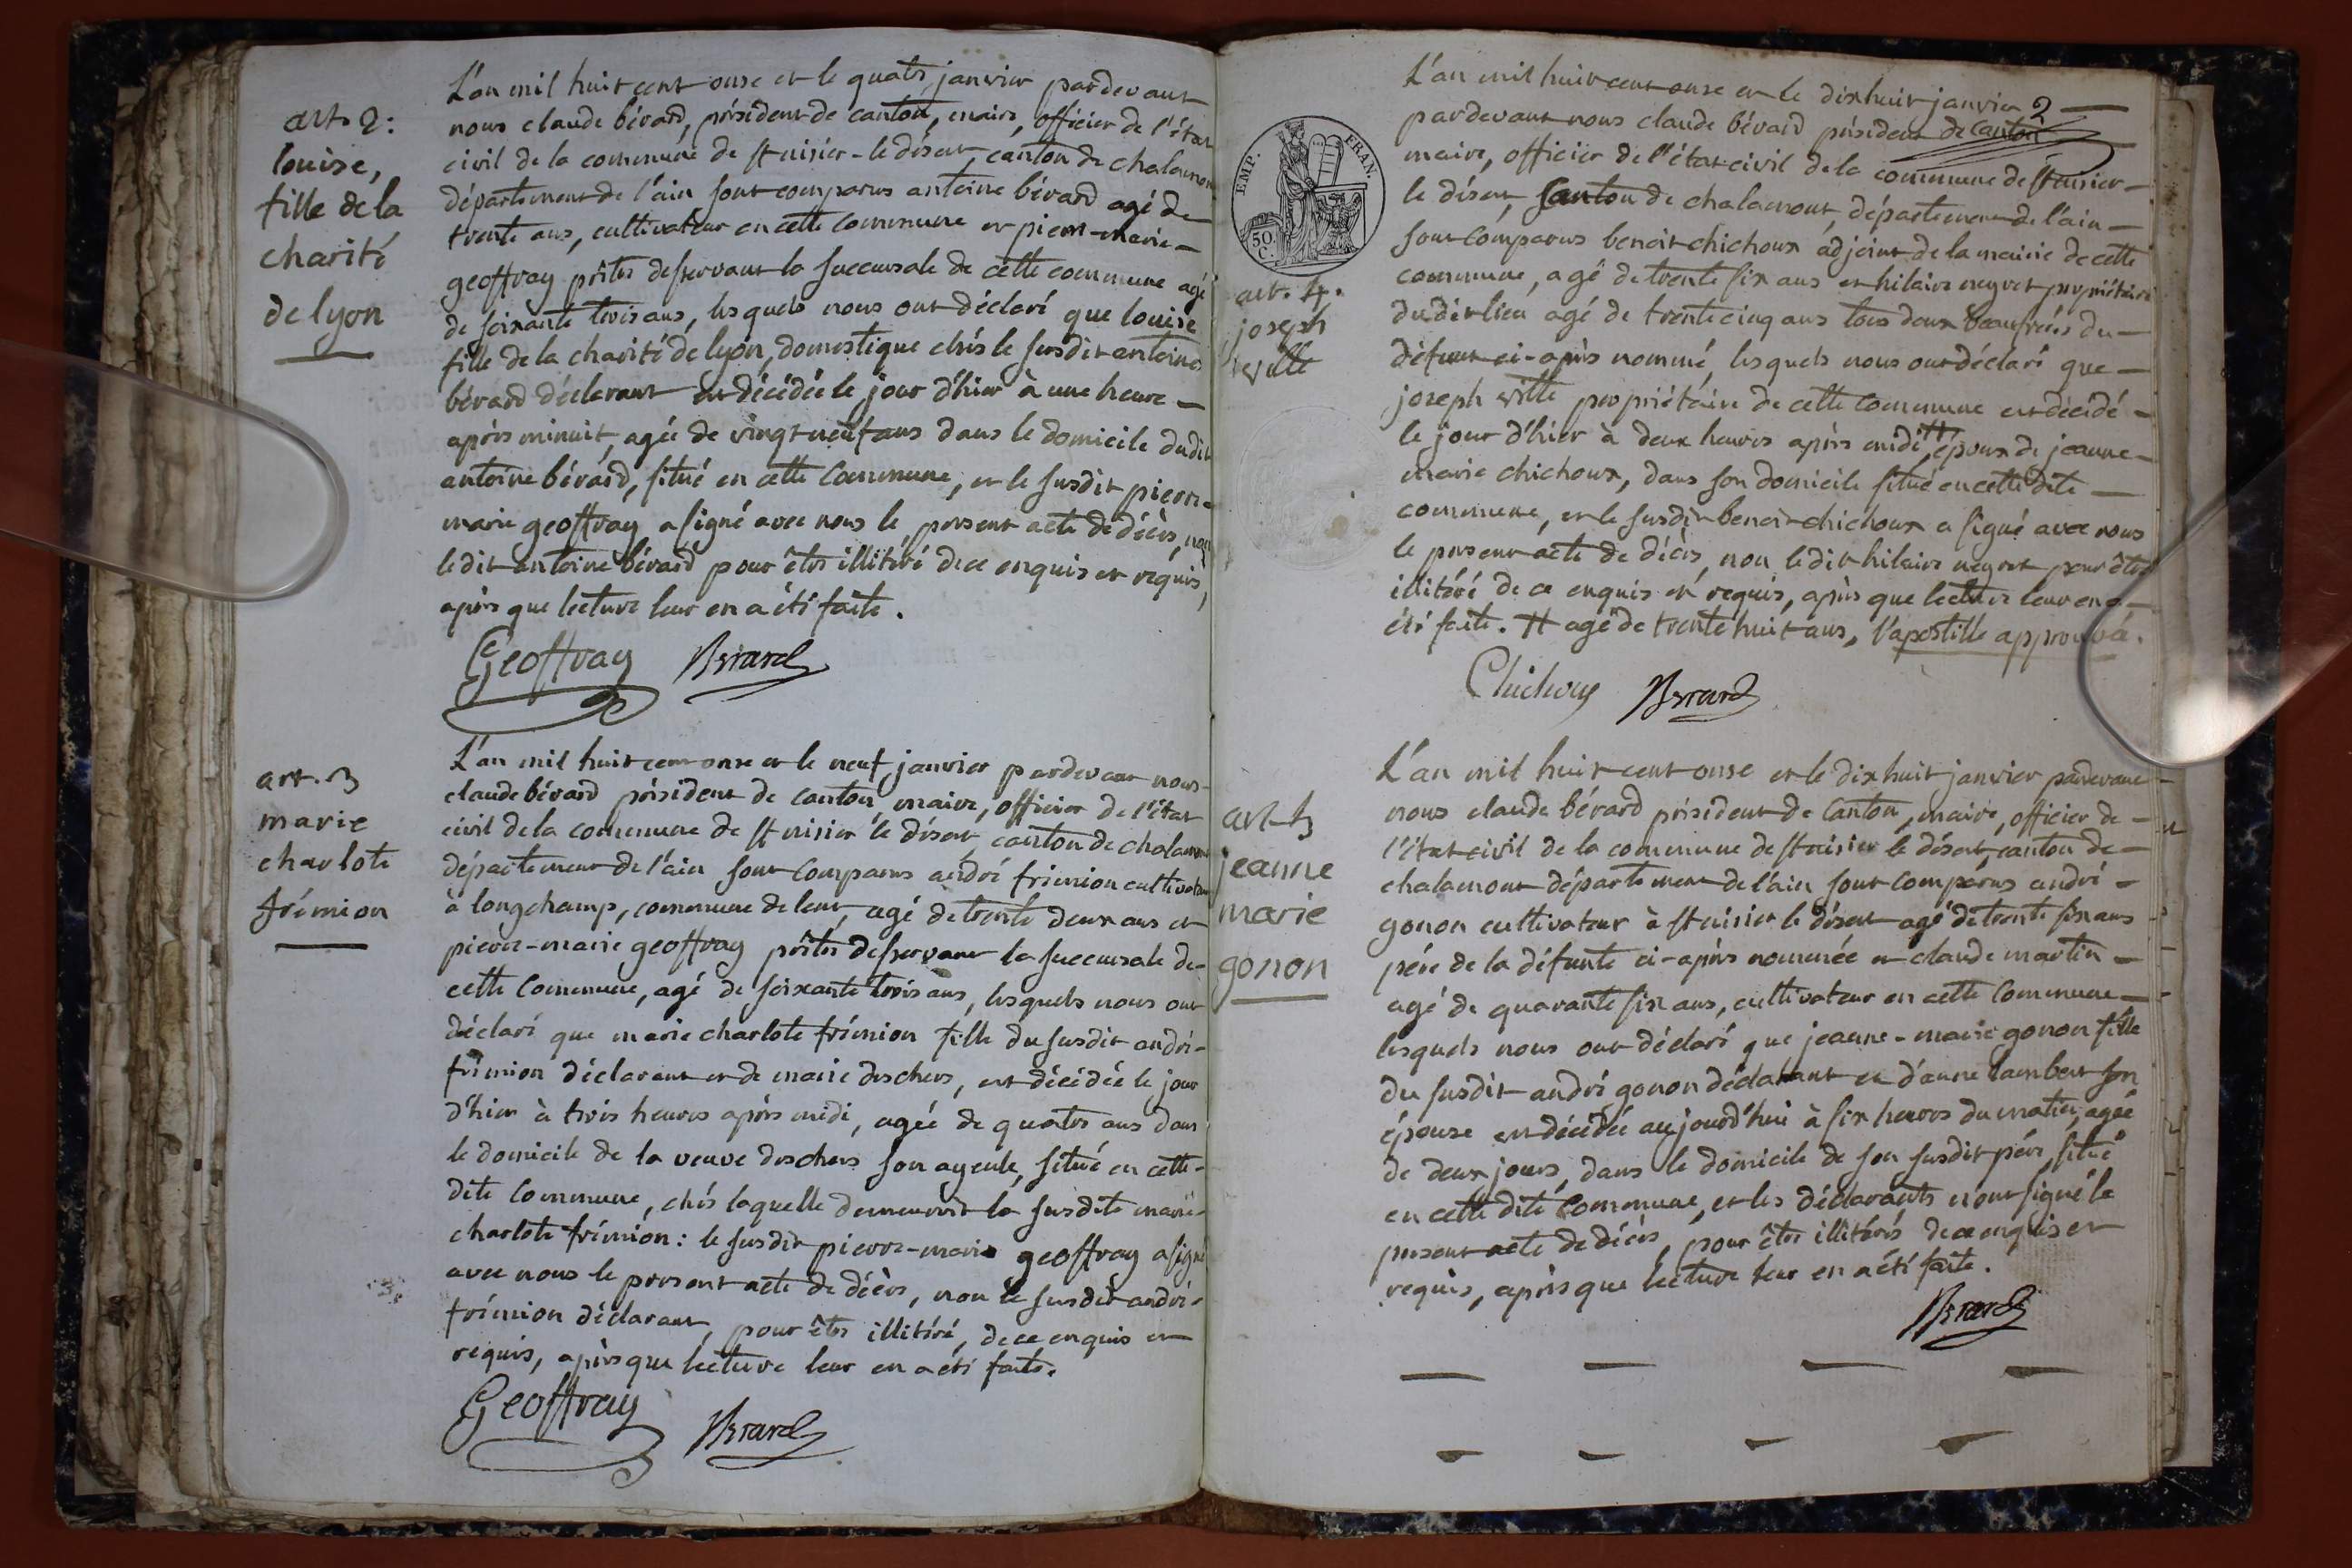 art. 2:
louise,
fille de la
charité
de lyon
L'an mil huit cent onse et le quatre janvier pardevant
nous claude bérard, président de canton, maire, officier de l'état
civil de la commune de st nisier-le désert, canton de chalamont
département de l'ain sont comparus antoine bérard agé de
trente ans, cultivateur en cette commune et pierre-marie-
geoffray prêtre desservant la succursale de cette commune agé
de soixante trois ans, lesquels nous ont déclaré que louise
fille de la charité de lyon, domestique chés le susdit antoine
bérard déclarant est décédée le jour d'hier à une heure
après minuit, agée de vingt neuf ans dans le domicile dudit
antoine bérard, situé en cette commune, et le susdit pierre-
marie geoffray a signé avec nous le present acte de décès, non
ledit antoine bérard pour être illitéré de ce enquis et requis,
après que lecture leur en a été faite.
Geoffray Berard
art. 3
marie
charlote
frémion
L'an mil huit cent onse et le neuf janvier pardevant nous
claude bérard président de canton maire, officier de l'état
civil de la commune de st nisier le désert, canton de chalamont
département de l'ain sont comparus andré frémion cultivateur
à longchamp, commune de lent, agé de trente deux ans et
pierre-marie geoffray prêtre desservant la succursale de-
cette commune, agé de soixante trois ans, lesquels nous ont
déclaré que marie charlote frémion fille du susdit andré-
frémion déclarant et de marie deschers, est décédée le jour
d'hier à trois heures après midi, agée de quatre ans dans
le domicile de la veuve deschers son ayeule, situé en cette-
dite commune, chés laquelle demeuroit la susdite marie-
charlote frémion: le susdit pierre-marie geoffray a signé
avec nous le present acte de décès, non le susdit andré-
frémion déclarant, pour être illitéré, de ce enquis et
requis, après que lecture leur en a été faite.
Geoffray Berard
EMP. FRAN.
50 C.
2
art. 4.
joseph
ville
L'an mil huit cent onse et le dix huit janvier
pardevant nous claude bérard président de canton
maire, officier de l'état civil de la commune de st nisier-
le désert, canton de chalamont, département de l'ain-
sont comparus benoit chichoux adjoint de la mairie de cette
commune, agé de trente six ans et hilaire neyret propriétaire
dudit lieu agé de trente cinq ans tous deux beaufrères du-
défunt ci-après nommé, lesquels nous ont déclaré que-
joseph ville propriétaire de cette commune est décédé-
le jour d'hier à deux heures après midi # époux de jeanne-
marie chichoux, dans son domicile situé en cette dite
commune, et le susdit benoit chichoux a signé avec nous
le present acte de décès, non ledit hilaire neyret pour être
illitéré de ce enquis et requis, après que lecture leur en a-
été faite. # agé de trente huit ans, l'apostille approuvée.
Chichoux Berard
art. 5
jeanne
marie
gonon
L'an mil huit cent onse et le dix huit janvier pardevant
nous claude bérard président de canton, maire, officier de-
l'état civil de la commune de st nisier le désert, canton de-
chalamont département de l'ain sont comparus andré-
gonon cultivateur à st nisier le désert agé de trente six ans
père de la défunte ci-après nommée et claude martin-
agé de quarante six ans, cultivateur en cette commune-
lesquels nous ont déclaré que jeanne-marie gonon fille
du susdit andré gonon déclarant et d'anne lambert son
épouse est décédée aujourd'hui à six heures du matin, agée
de deux jours, dans le domicile de son susdit père, situé
en cette dite commune, et les déclarants n'ont signé le
present acte de décès, pour être illitérés de ce enquis et
requis, après que lecture leur en a été faite.
Berard